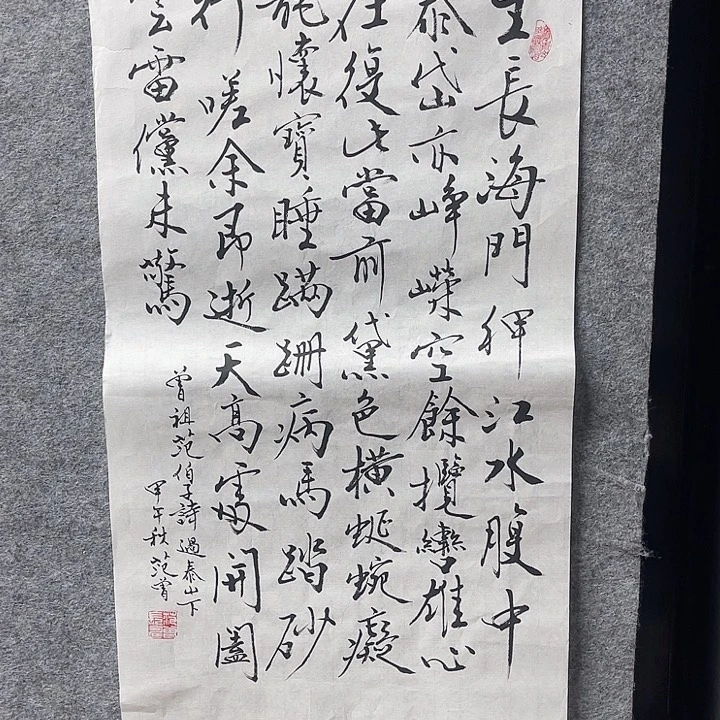 生長海門狎江水腹中
泰岱亦崢嶸空餘攬轡雄心
在復此當前黛色橫蜒蜿癡
龍懷寶睡蹣跚病馬踏砂
行嗟余即逝天高處開闔
雲雷儻未驚
曾祖范伯子詩過泰山下
甲午秋范曾